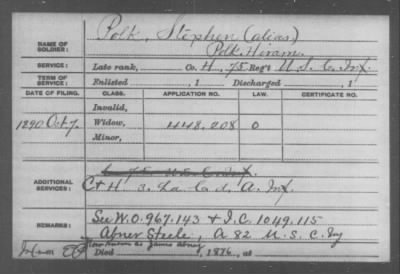 Polk, Stephen (alias)
Polk, Hiram.
NAME OF SOLDIER:
SERVICE: Late rank, Co. H, 75 Reg't U. S. C. Inf.
TERM OF SERVICE: Enlisted , 1 Discharged , 1
DATE OF FILING. CLASS. APPLICATION NO. LAW. CERTIFICATE NO.
Invalid,
1890 Oct 7. Widow, 448.208 0
Minor,
ADDITIONAL SERVICES:
C & H 3. La C. d' A. Inf.
REMARKS: See W.O. 967.143 & I.C. 1049.115
Abner Steele, A 82 U. S. C. Inf
Now known as James Abney
Died , 1876, at